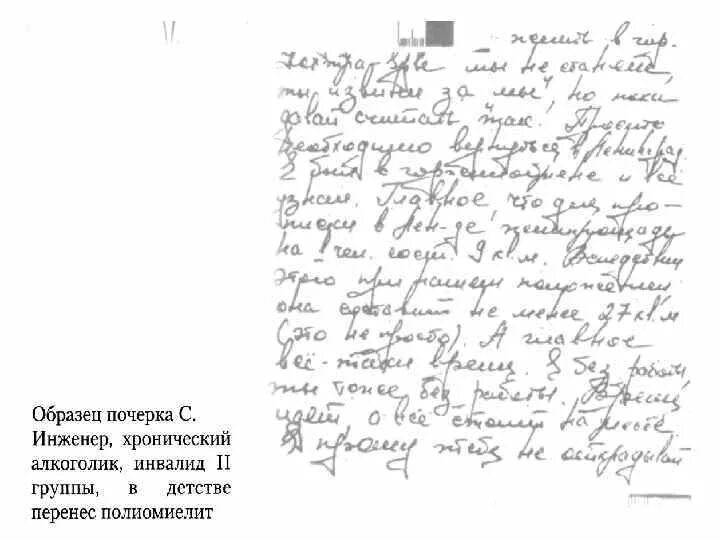 жить в гор.
мы не станем,
ты извини за "мы", но пока
давай считать так. Просто
необходимо вернуться в Ленинград
Я был в и всё
узнал. Главное, что для про-
писки в Лен-де жилплощадь
на 1 чел. сост. 9 кв. м. Вследствии
этого при нашем положении,
она составит не менее 27 кв. м
(это не просто). А главное
всё-таки время. Я без работы,
ты тоже без работы. Время
идёт, а всё стоит на месте.
Я прошу тебя не откладывай
Образец почерка С.
Инженер, хронический
алкоголик, инвалид II
группы, в детстве
перенес полиомиелит